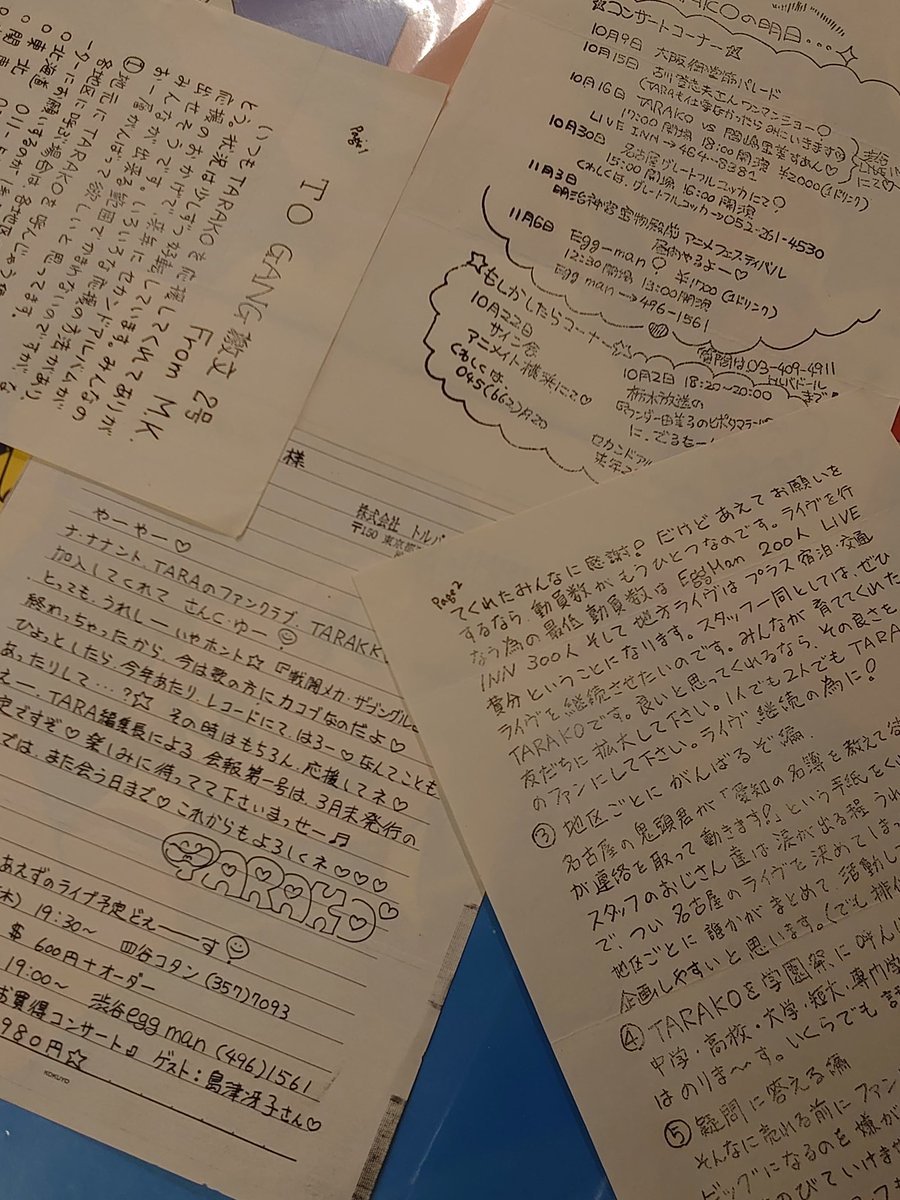 TARAKOの明日...
☆コンサートコーナー☆
10月9日 大阪御堂筋パレード
10月15日 古川登志夫さんワンマンショー
(TARAも仕事なかったらみにいきます
10月16日 TARAKO VS 岡嶋
17:00開場 18:00開演 ¥2000(1ドリンク)
LIVE INN→464-8381
10月30日 名古屋グレートフルニッカにて
15:00開場 16:00開演
くわしくは、グレートフルニッカ→052-261-4530
11月3日
明治神宮宝物殿前 アニメフェスティバル
昼間やるよー♡
11月6日 Egg-man ¥1700(1ドリンク)
12:30開場 13:00開演
Egg man→496-1561
質問は03-409-4911
トルバドールまで
☆もしかしたらコーナー☆
10月22日
サイン会
アニメイト横浜にて♡
くわしくは、
045(662)
10月2日 18:20~20:00
栃木放送の
に、でるもー
セカンドアル
Page 1
TO GANG 檄文 2号
From M.K.
いつもTARAKOを応援してくれてありが
とう。状況は少しずつ好転しています。みんなの
応援のおかげで、来年にセカンドアルバムが
出せそうです。いろいろな応援の方法があり
みんなが出来る範囲でかまわないのですが
一層がんばって欲しいと思ってます。
① 地元にTARAKOを呼んじゃう編
各地区に呼ぶ場合は、各地区
ーターにお願いするのが
○北海道 011
○東北
○関
様
株式会社 トルバ
〒150 東京都
やーやー♡
ナ・ナナント、TARAのファンクラブ、TARAKK
加入してくれて さんC・ゆー
とっても、うれしーいやホント☆ 『戦闘メカ・ザブングル』
終わっちゃったから、今は歌の方に力コブなのだよ♡
ひょっとしたら、今年あたり、レコードにて、はろー♡なんてことも
あったりして...?☆ その時はもちろん、応援してネ♡
えー、TARA編集長による、会報第一号は、3月末発行の
定ですぞ♡ 楽しみに待ってて下さいまっせー♬
では、また会う日まで♡ これからもよろしくネ♡♡♡
TARAKO
あえずのライブ予定どぇーーーす
木) 19:30~ 四谷コタン(357)7093
$ 600円+オーダー
19:00~ 渋谷egg man(496)1561
お買得コンサート ゲスト:島津冴子さん♡
980円☆
KOKUYO
Page 2
てくれたみんなに感謝! だけどあえてお願いを
するなら、動員数がもうひとつなのです。ライヴを行
なう為の最低動員数は EggMan 200人 LIVE
INN 300人 そして地方ライヴはプラス宿泊・交通
費分ということになります。スタッフ一同としては、ぜひ
ライヴを継続させたいのです。みんなが育ててくれた
TARAKOです。良いと思ってくれるなら、その良さを
友だちに拡大して下さい。1人でも2人でもTARA
のファンにして下さい。ライヴ継続の為に!
③ 地区ごとにがんばるぞ編
名古屋の鬼頭君が「愛知の名簿を教えて欲
が連絡を取って動きます!」という手紙をく
スタッフのおじさん達は涙が出る程うれ
で、つい名古屋のライヴを決めてしまっ
地区ごとに誰かがまとめて、活動し
企画しやすいと思います。(でも排他
④ TARAKOを学園祭に呼んじ
中学・高校・大学・短大・専門学
はのりま~す。いくらでも
⑤ 疑問に答える編
そんなに売れる前にファン
ビッグになるのを嫌が
のびていけませ